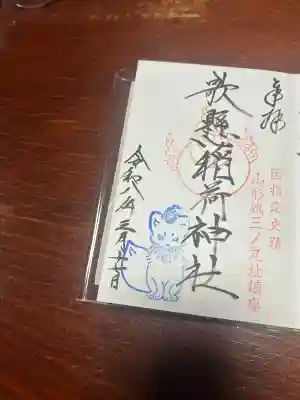 奉拝
国指定史跡
山形城三ノ丸址鎮座
歌懸稲荷神社
令和八年三月廿一日